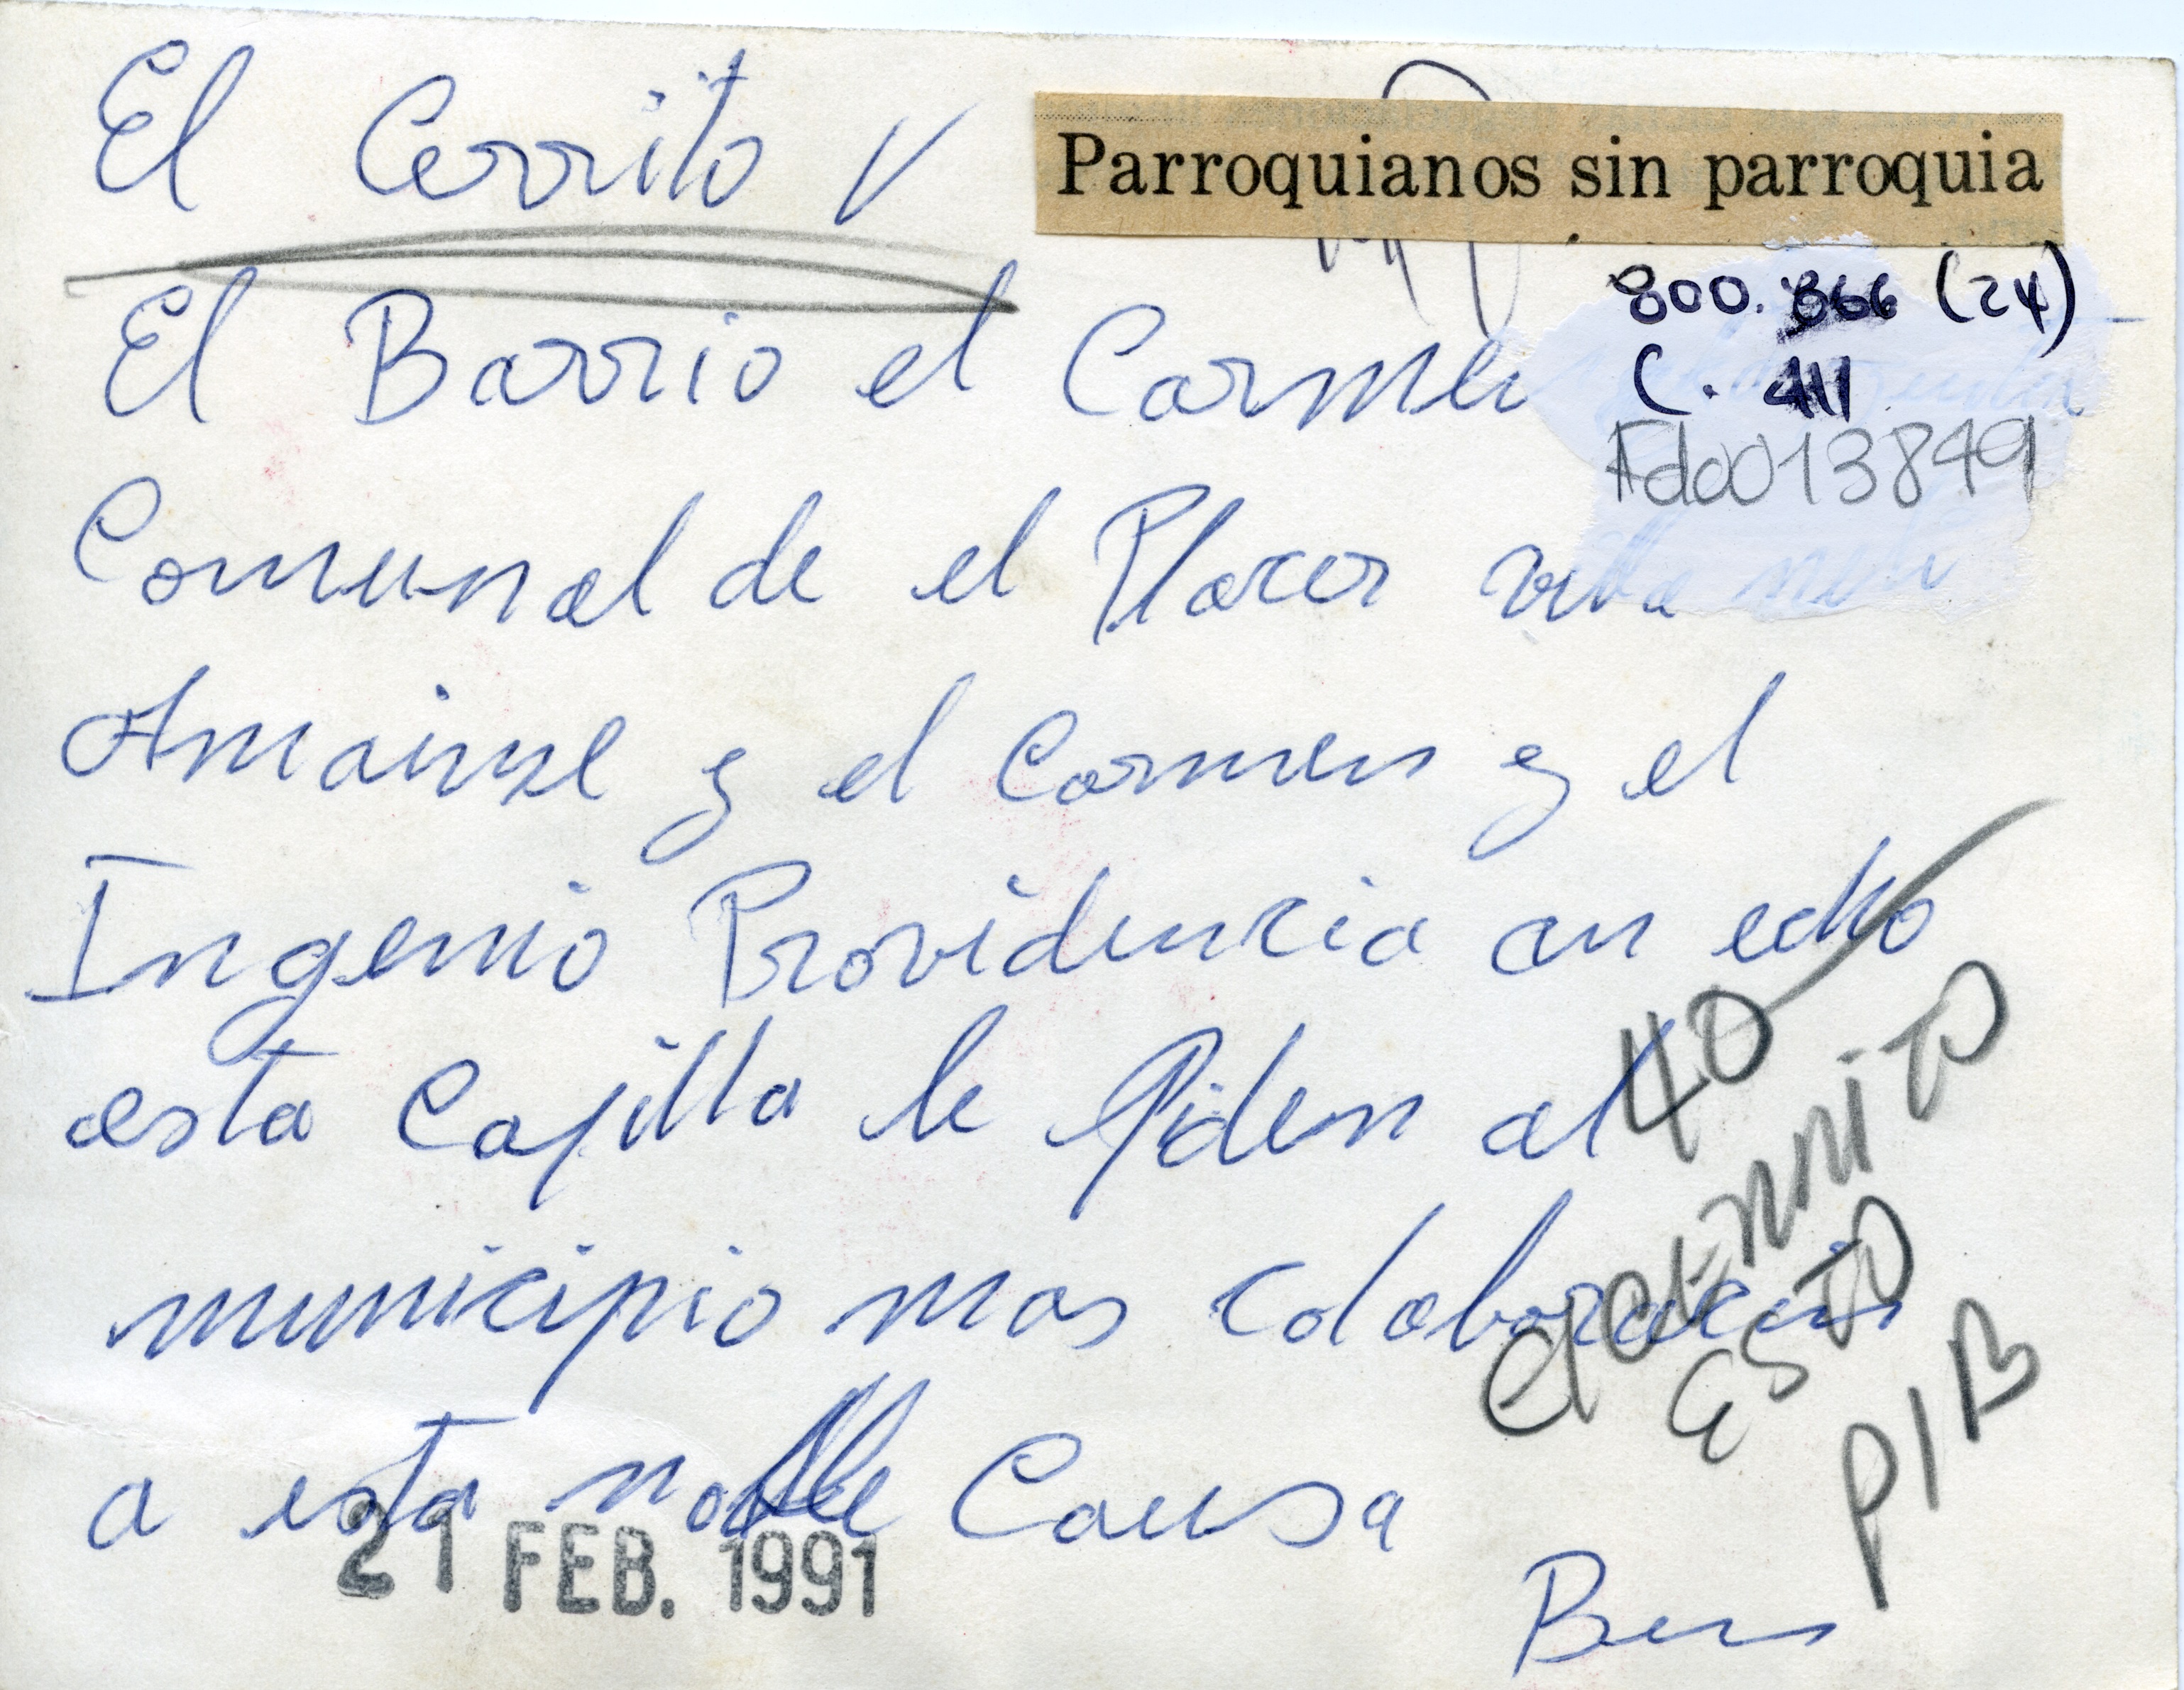 El Cerrito V
Parroquianos sin parroquia
800.866 (24)
C. 411
Fdo013849
El Barrio el Carmen
Comunal de el Placer
Amaime y el Carmen y el
Ingenio Providencia an echo
esta Capilla le Piden al
40
municipio mas colaboracion
El CERRITO
ESTO
PIB
a esta noble Causa
21 FEB. 1991